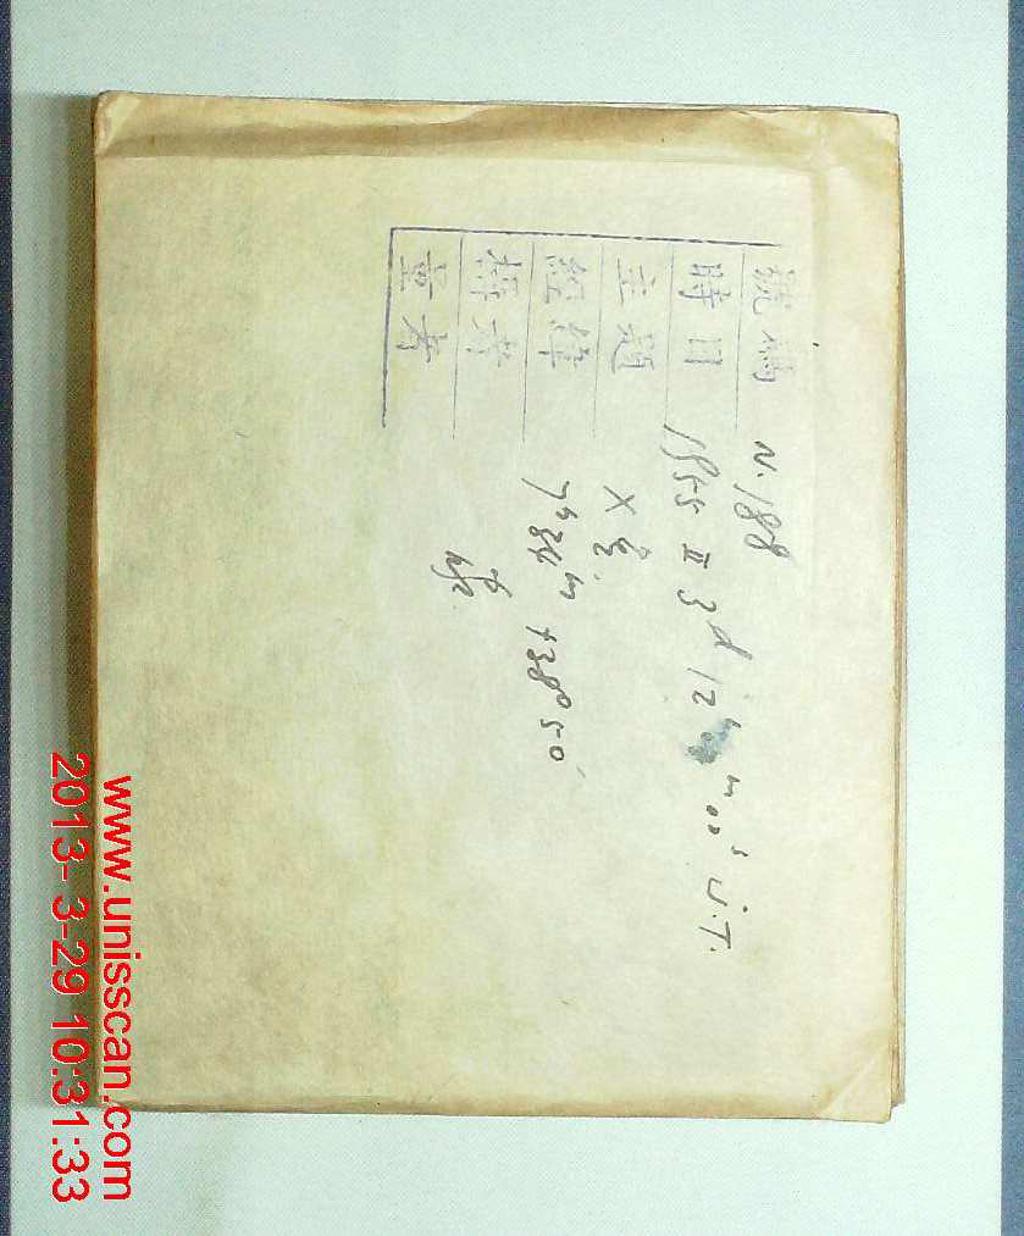 號碼 N. 188
時日 1955 II 3d 12h m 00s U.T.
主題 X
經緯 7h 38m +38°50'
攝者
童考
www.unisscan.com
2013- 3-29 10:31:33